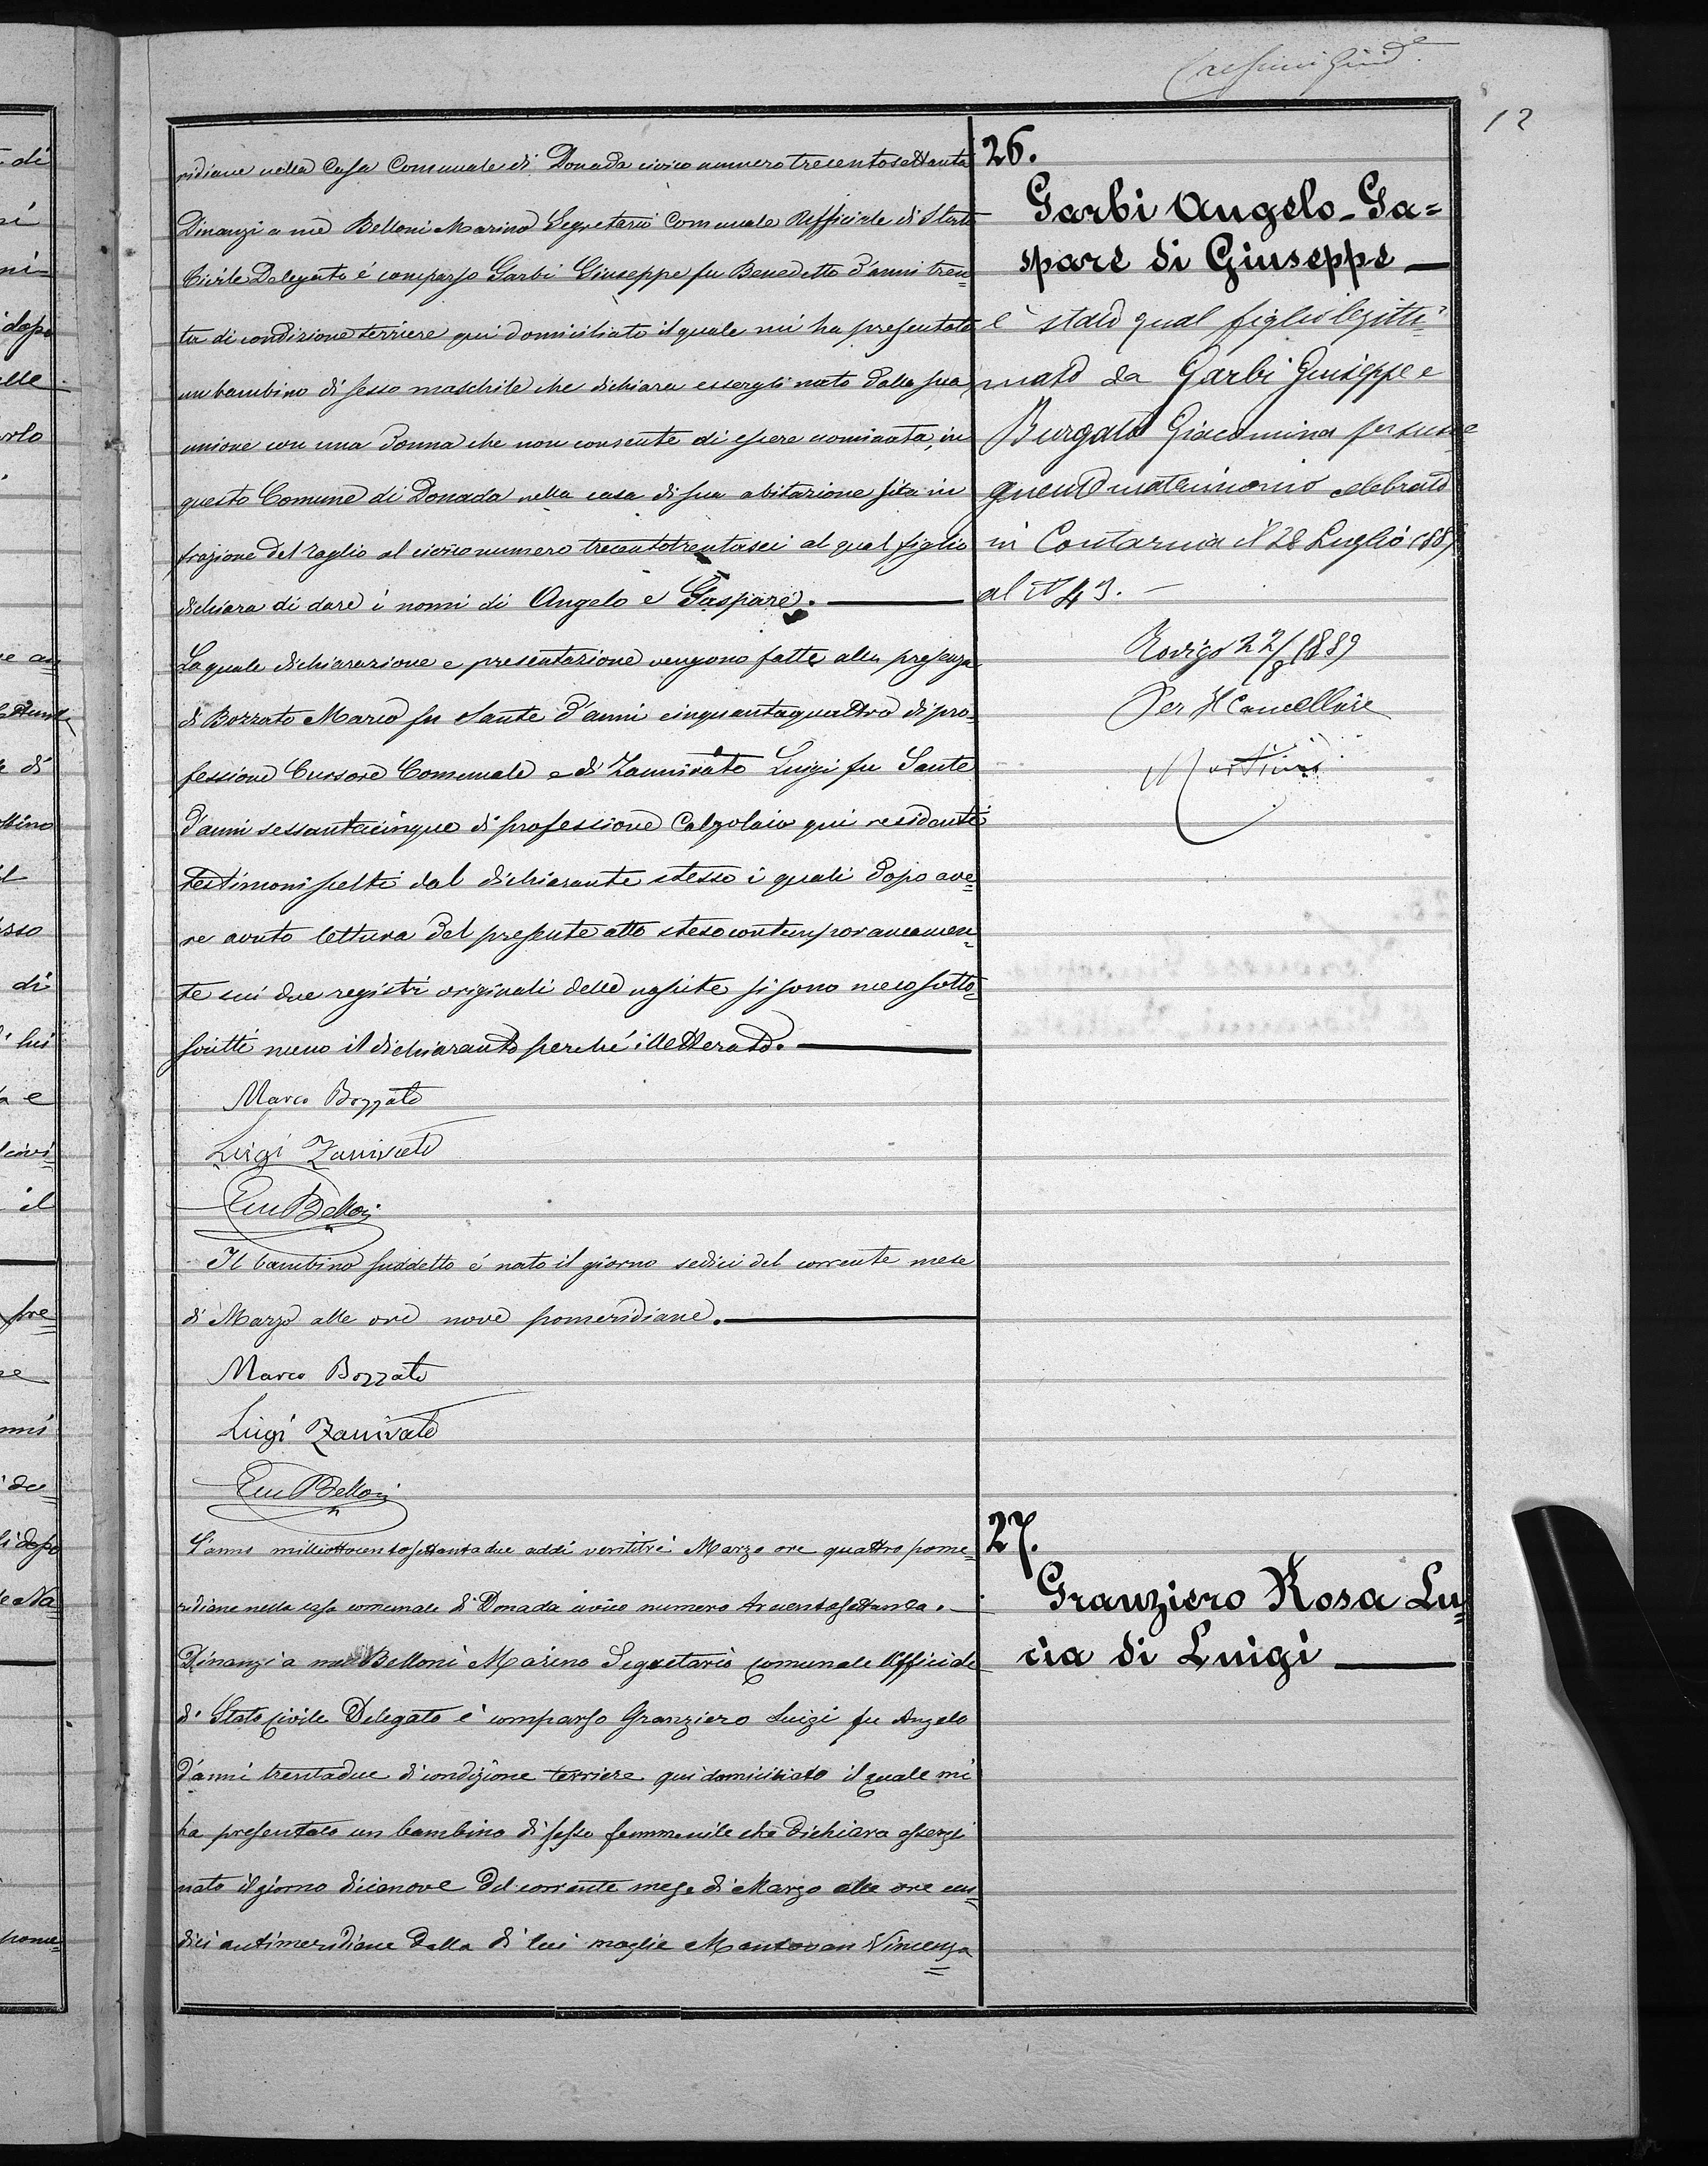 12
ridiane nella Casa Comunale di Donada civico numero trecentosettanta
Dinanzi a me Belloni Marino Segretario Comunale Uffiziale di Stato
Civile Delegato é comparso Garbi Giuseppe fu Benedetto d'anni tren=
ta di condizione terriere qui domiciliato il quale mi ha presentato
un bambino di sesso maschile che dichiara essergli nato dalla sua
unione con una donna che non consente di essere nominata, in
questo Comune di Donada nella casa di sua abitazione sita in
frazione del Taglio al civico numero trecentotrentasei al qual figlio
dichiara di dare i nomi di Angelo e Gaspare.
La quale dichiarazione e presentazione vengono fatte alla presenza
di Bozzato Marco fu Sante d'anni cinquantaquattro di pro=
fessione Cursore Comunale e di Zannivato Luigi fu Sante
d'anni sessantacinque di professione Calzolaio qui residenti
testimoni scelti dal dichiarante stesso i quali dopo ave=
re avuto lettura del presente atto steso contemporaneamen=
te sui due registri originali delle nascite si sono meco sotto=
scritti meno il dichiarante perché illetterato.
Marco Bozzato
Luigi Zanivato
Belloni
Il bambino suddetto é nato il giorno sedici del corrente mese
di Marzo alle ore nove pomeridiane.
Marco Bozzato
Luigi Zanivato
Belloni
L'anno milleottocentosettantadue addi ventitrè Marzo ore quattro pome=
ridiane nella casa comunale di Donada civico numero trecentosettanta.
Dinanzi a me Belloni Marino Segretario comunale Ufficiale
di Stato Civile Delegato è comparso Granziero Luigi fu Angelo
d'anni trentadue di condizione terriere qui domiciliato il quale mi
ha presentato un bambino di sesso femminile che dichiara essergli
nato il giorno dicianove del corrente mese di Marzo alle ore un=
dici antimeridiane dalla di lui moglie Mantovan Vincenza
26.
Garbi Angelo-Ga=
spare di Giuseppe
è stato qual figlio legitti=
mato da Garbi Giuseppe e
Burgato Giacomina per susse
guente matrimonio celebrato
in Contarina il 28 Luglio 1889
al N 43.
Rovigo 22/8 1889
Per Il Cancelliere
27.
Granziero Rosa Lu=
cia di Luigi